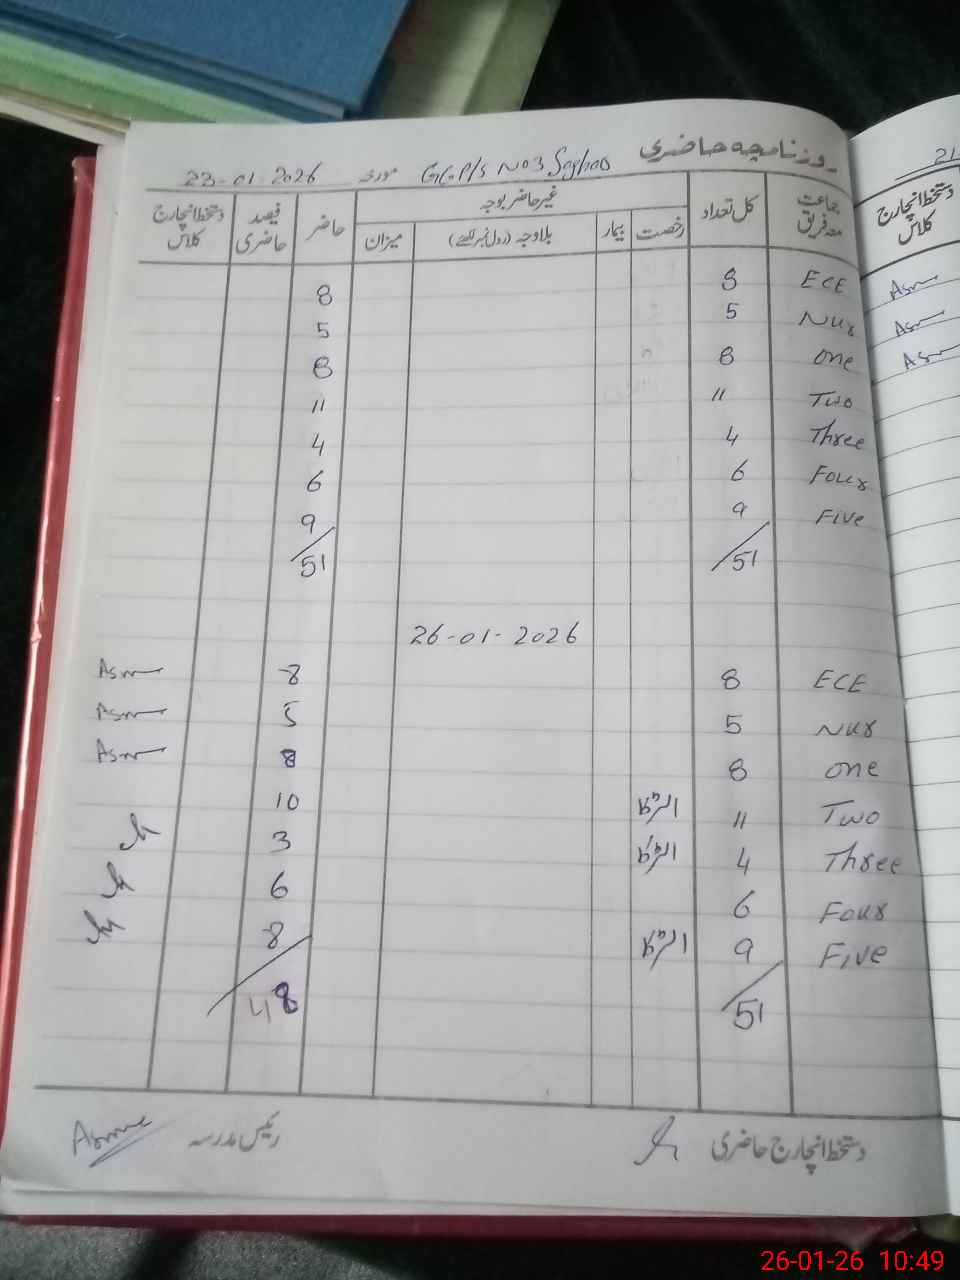 روزنامچہ حاضری GGP/s No3 Saghao مورخہ 23-01-2026
جماعت معہ فریق کل تعداد غیر حاضر بوجہ حاضر فیصد حاضری دستخط انچارج کلاس
رخصت بیمار بلاوجہ (رول نمبر لکھئے) میزان
ECE 8 8
Nur 5 5
one 8 8
Two 11 11
Three 4 4
Four 6 6
Five 9 9
51 51
26-01-2026
ECE 8 8
Nur 5 5
one 8 8
Two 11 10
Three 4 3
Four 6 6
Five 9 8
51 48
دستخط انچارج حاضری رئیس مدرسہ
21
دستخط انچارج کلاس
26-01-26 10:49